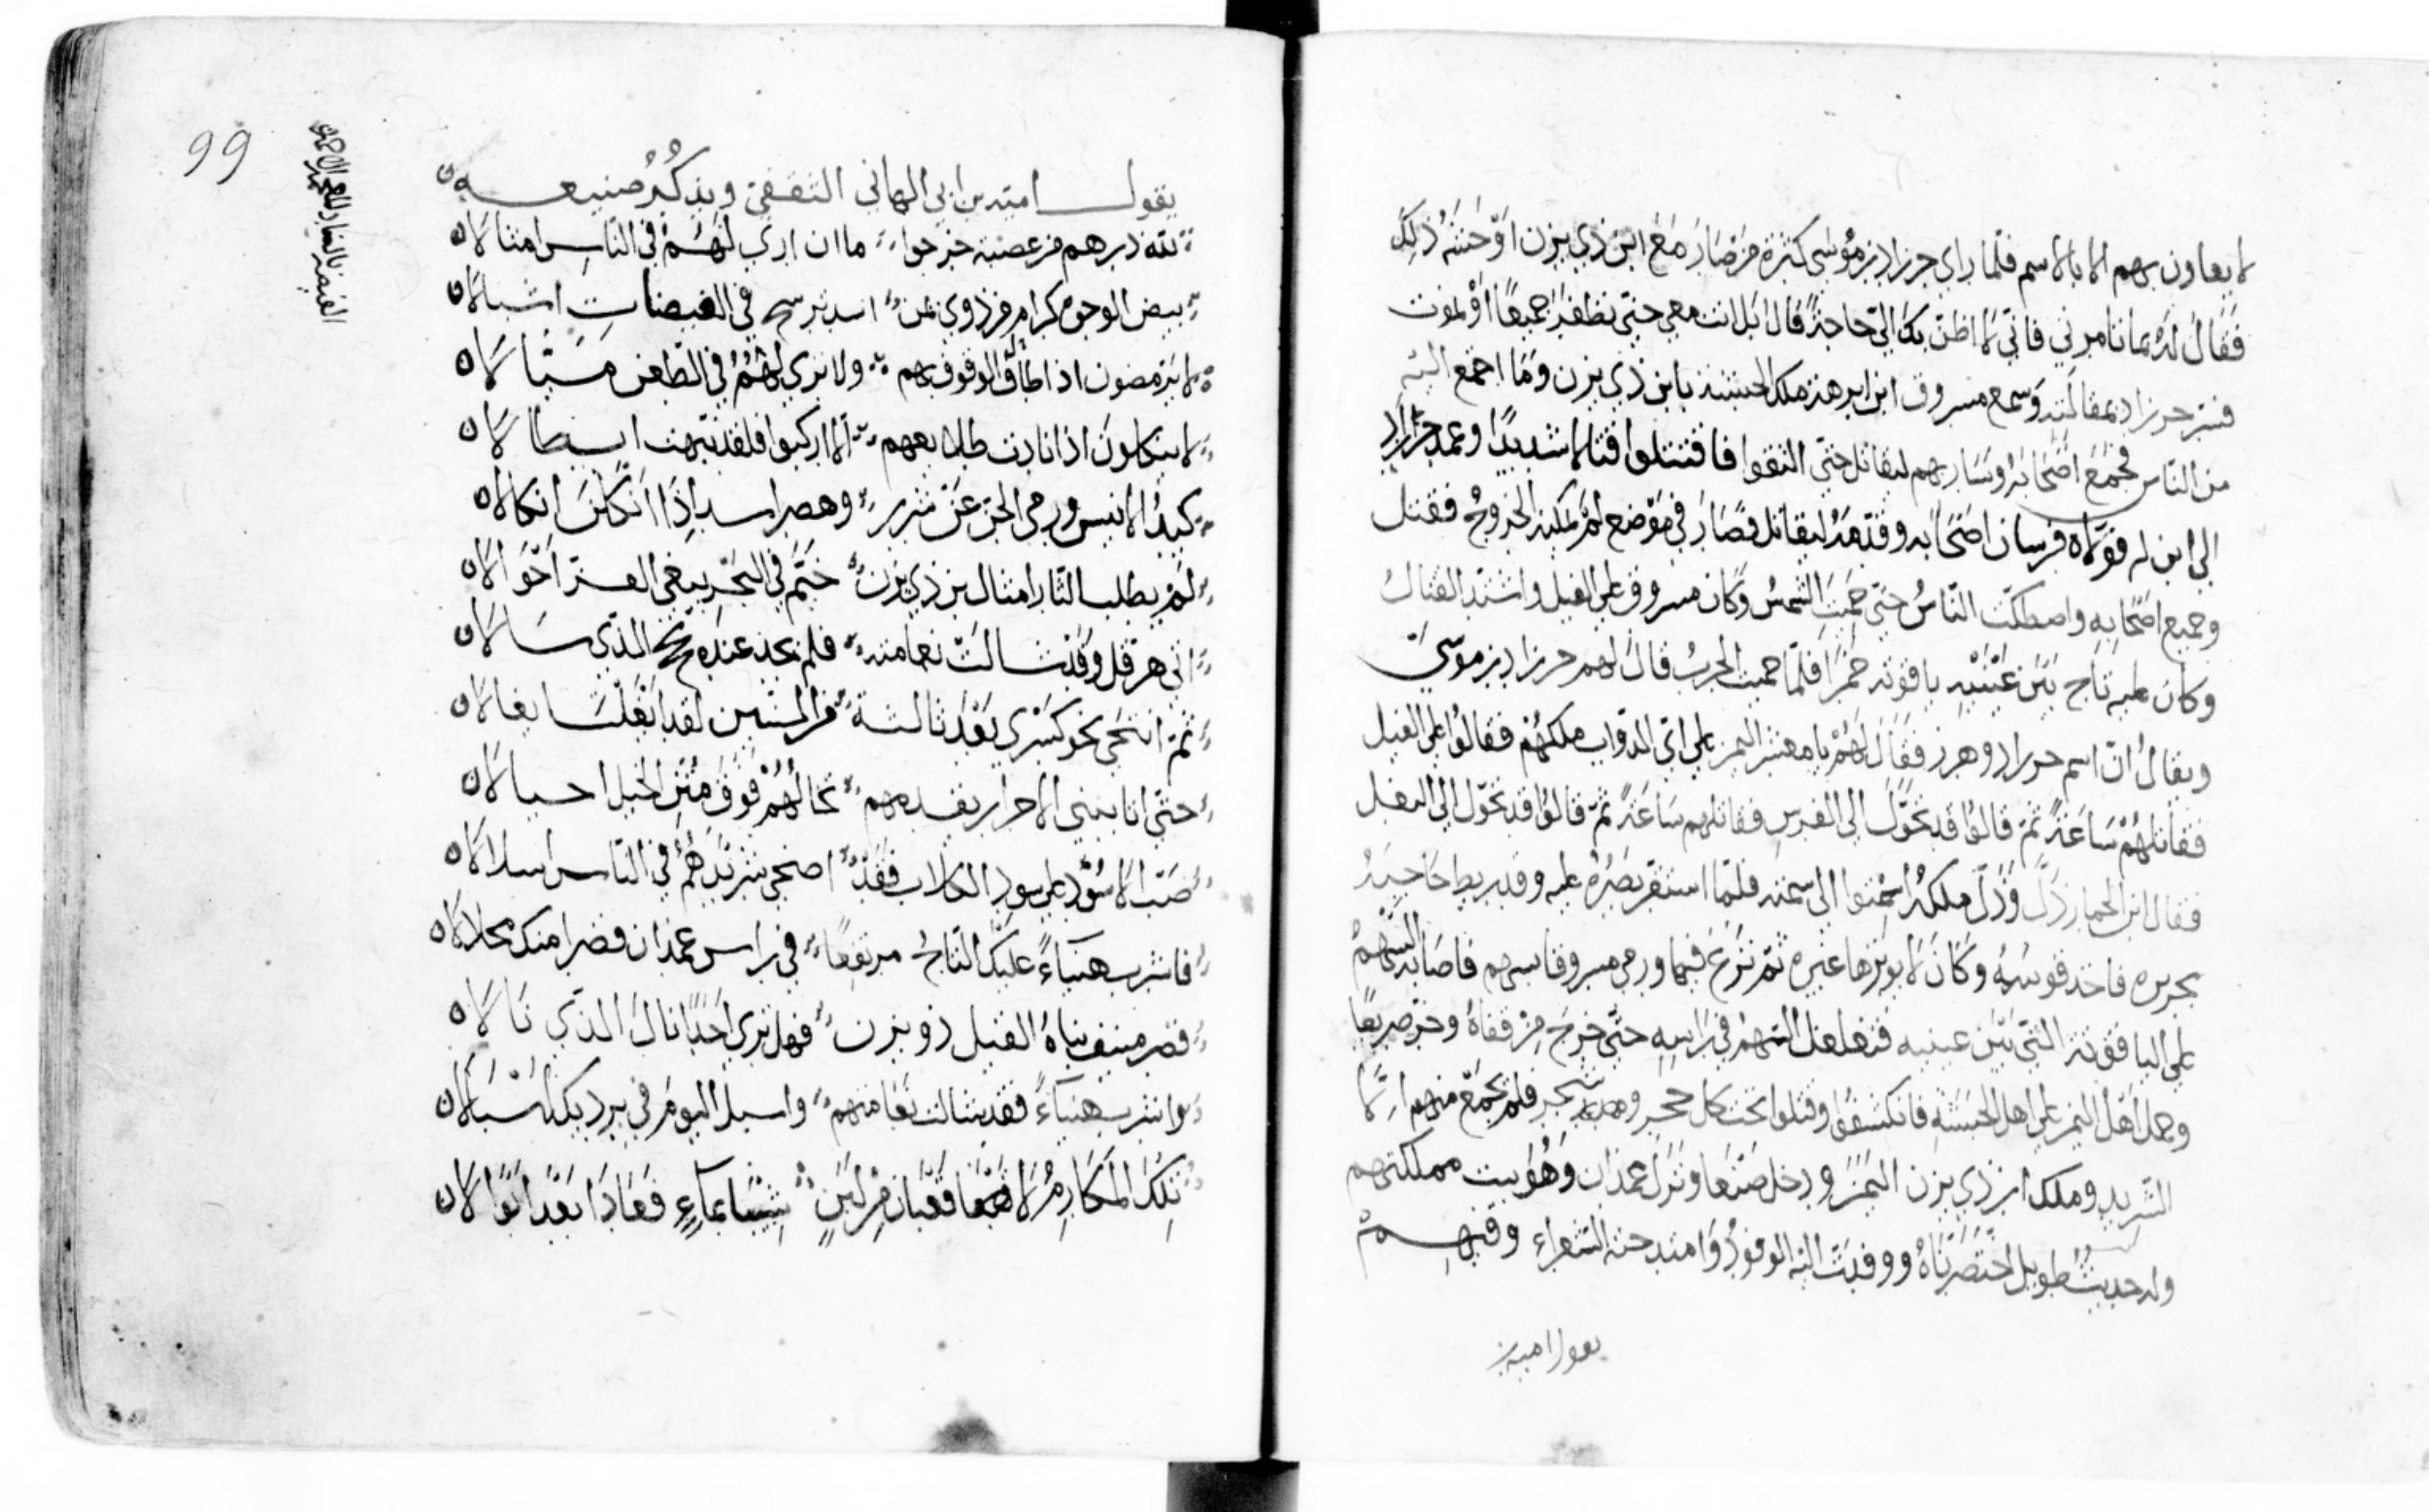 لا يعاون بهم الا بالاسم فلما راي حرزاد بن موسى كثرة من صار مع ابن ذي يزن اوحشه ذلك
فقال له بما تامرني فاني لا اظن بك الي حاجة قال بل انت معي حتى نظفر جميعًا او نموت
فسر حرزاد بمقالته وسمع مسروق ابن ابرهة ملك الحبشة بابن ذي يزن وما اجمع اليه
من الناس فجمع اصحابه وسار بهم ليقاتل حتى التقوا فاقتتلوا قتالا شديدًا وعمد حرزاد
الى ابن له فولاه فرسان اصحابه وقدمه ليقاتل فصار في موضع لم يمكنه الخروج فقتل
وجميع اصحابه واصطكت الناس حتى حميت الشمس وكان مسروق على الفيل واشتد القتال
وكان عليه تاج بين عينيه ياقوته حمرا فلما حميت الحرب قال لهم حرزاد بن موسى
ويقال ان اسم حرزاد وهرز فقال لهم يا معشر اليمن على اي الدواب ملكهم فقالوا على الفيل
فقاتلهم ساعة ثم قالوا قد تحول الى الفرس فقاتلهم ساعة ثم قالوا قد تحول الى البغل
فقال ابن الحمار ذل وذل ملكه اسمتوا الى سمته فلما استقر بصره عليه وقد ربط حاجبيه
بحريره فاخذ قوسه وكان لا يوترها غيره ثم نزع فيها ورمى مسروقا بسهم فاصابه السهم
على الياقوتة التي بين عينيه فتغلغل السهم في راسه حتى خرج من قفاه وخر صريعًا
وحمل اهل اليمن على اهل الحبشة فانكشفوا وقتلوا تحت كل حجر وشجر فلم يجمع منهم الا
الشريد وملك ابن ذي يزن اليمن ودخل صنعا ونزل غمدان وهو بيت مملكتهم
وله حديث طويل اختصرناه ووفدت اليه الوفود وامتدحته الشعراء وفيهم
يقول امية بن
99
يقول امية بن ابي الهاني الثقفي ويذكر صنيعه
لله درهم من عصبة خرجوا ما ان اري لهم في الناس امثالا
بيض الوجوه كرام من ذوي يمن اسد تربي في الغيضات اشبالا
لا يرمضون اذا طال الوقوف بهم ولا تري لهم في الطعن ميالا
لا ينكلون اذا نادت طلايعهم الا اركبوا فلقد نبهت ابطالا
كيد الانيس ورمى الجن عن شرر وهصر اسد اذا انكلن انكالا
لم يطلب الثار امثال بن ذي يزن خيم في البحر يبغي العز احوالا
اتى هرقل وقد شالت نعامته فلم يجد عنده الذي سالا
ثم انتحى نحو كسرى بعد ثالثة من السنين لقد ابغلت ايغالا
حتى اتا ببني الاحرار يقدمهم تخالهم فوق متن الخيل اجبالا
صب الاسود على سود الكلاب فقد اضحى شريدهم في الناس اسلالا
فاشرب هنياءً عليك التاج مرتفعًا في راس غمدان قصرا منك محلالا
قصر منيف بناه القيل ذو يزن فهل تري احدًا نال الذي نالا
واشرب هنياءً فقد شالت نعامتهم واسبل اليوم في برديك اسبالا
تلك المكارم لا قعبان من لبن شيبا بماءٍ فعادا بعد ابوالا